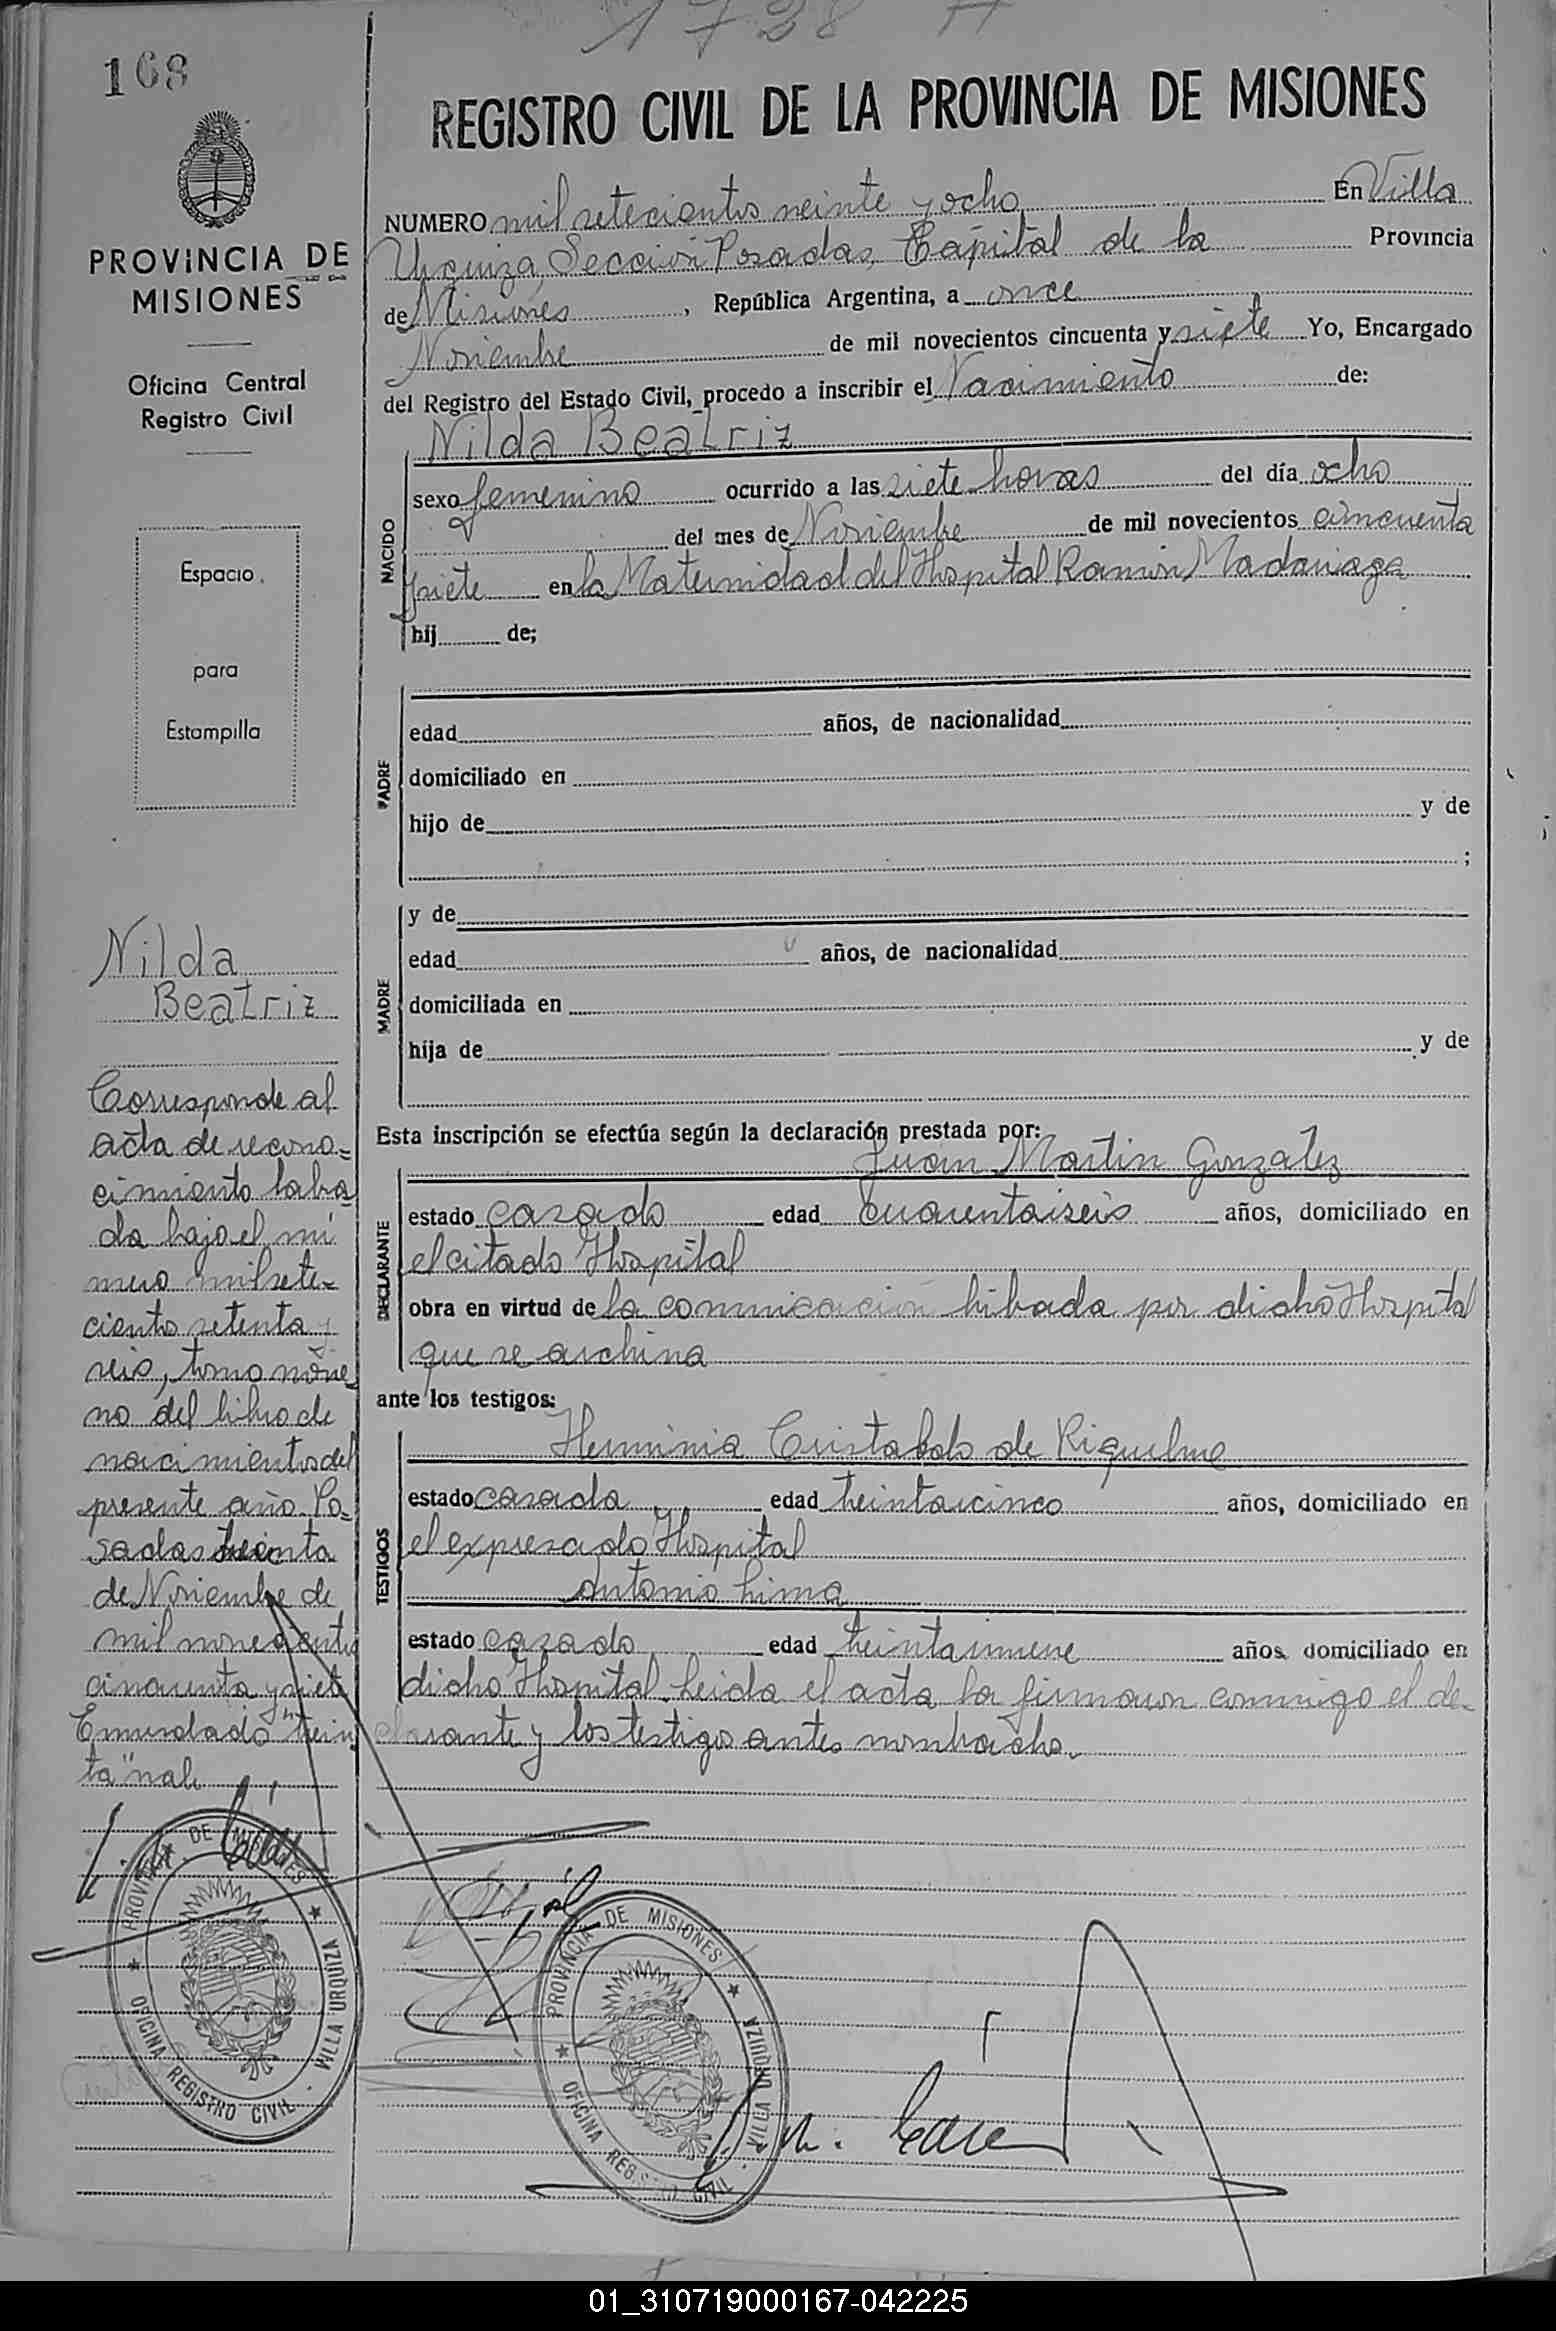 1728 A
168
REGISTRO CIVIL DE LA PROVINCIA DE MISIONES
PROVINCIA DE
MISIONES
Oficina Central
Registro Civil
Espacio
para
Estampilla
NUMERO mil setecientos veinte y ocho En Villa
Urquiza, Sección Posadas, Capital de la Provincia
de Misiones, República Argentina, a once
Noviembre de mil novecientos cincuenta y siete Yo, Encargado
del Registro del Estado Civil, procedo a inscribir el Nacimiento de:
Nilda Beatriz
NACIDO
sexo femenino ocurrido a las siete horas del día ocho
del mes de Noviembre de mil novecientos cincuenta
y siete en la Maternidad del Hospital Ramón Madariaga
hij de;
PADRE
edad años, de nacionalidad
domiciliado en
hijo de y de
;
MADRE
y de
edad años, de nacionalidad
domiciliada en
hija de y de
Esta inscripción se efectúa según la declaración prestada por:
Juan Martin Gonzalez
DECLARANTE
estado casado edad cuarentaiseis años, domiciliado en
el citado Hospital
obra en virtud de la comunicación librada por dicho Hospital
que se archiva
ante los testigos:
Herminia Cristaldo de Riquelme
TESTIGOS
estado casada edad treintaicinco años, domiciliado en
el expresado Hospital
Antonio Lima
estado casado edad treintainueve años domiciliado en
dicho Hospital. Leida el acta la firmaron conmigo el de-
clarante y los testigos antes nombrados.
Nilda
Beatriz
Corresponde al
acta de recono=
cimiento labra
da bajo el nú
mero mil sete-
ciento setenta y
seis, tomo nove
no del libro de
nacimientos del
presente año. Po=
sadas treinta
de Noviembre de
mil novecientos
cincuenta y siete
Enmendado "trein
ta" vale
PROVINCIA DE MISIONES
OFICINA REGISTRO CIVIL · VILLA URQUIZA
PROVINCIA DE MISIONES
OFICINA REGISTRO CIVIL · VILLA URQUIZA
01_310719000167-042225